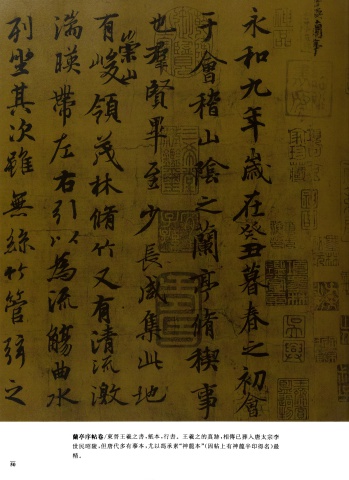 永和九年歲在癸丑暮春之初會
于會稽山陰之蘭亭脩稧事
也羣賢畢至少長咸集此地
有崇山峻領茂林脩竹又有清流激
湍暎帶左右引以為流觴曲水
列坐其次雖無絲竹管弦之
蘭亭序帖卷/東晉王羲之書,紙本,行書。王羲之的真跡,相傳已葬入唐太宗李
世民昭陵,但唐代多有摹本,尤以馮承素“神龍本”(因帖上有神龍半印得名)最
精。